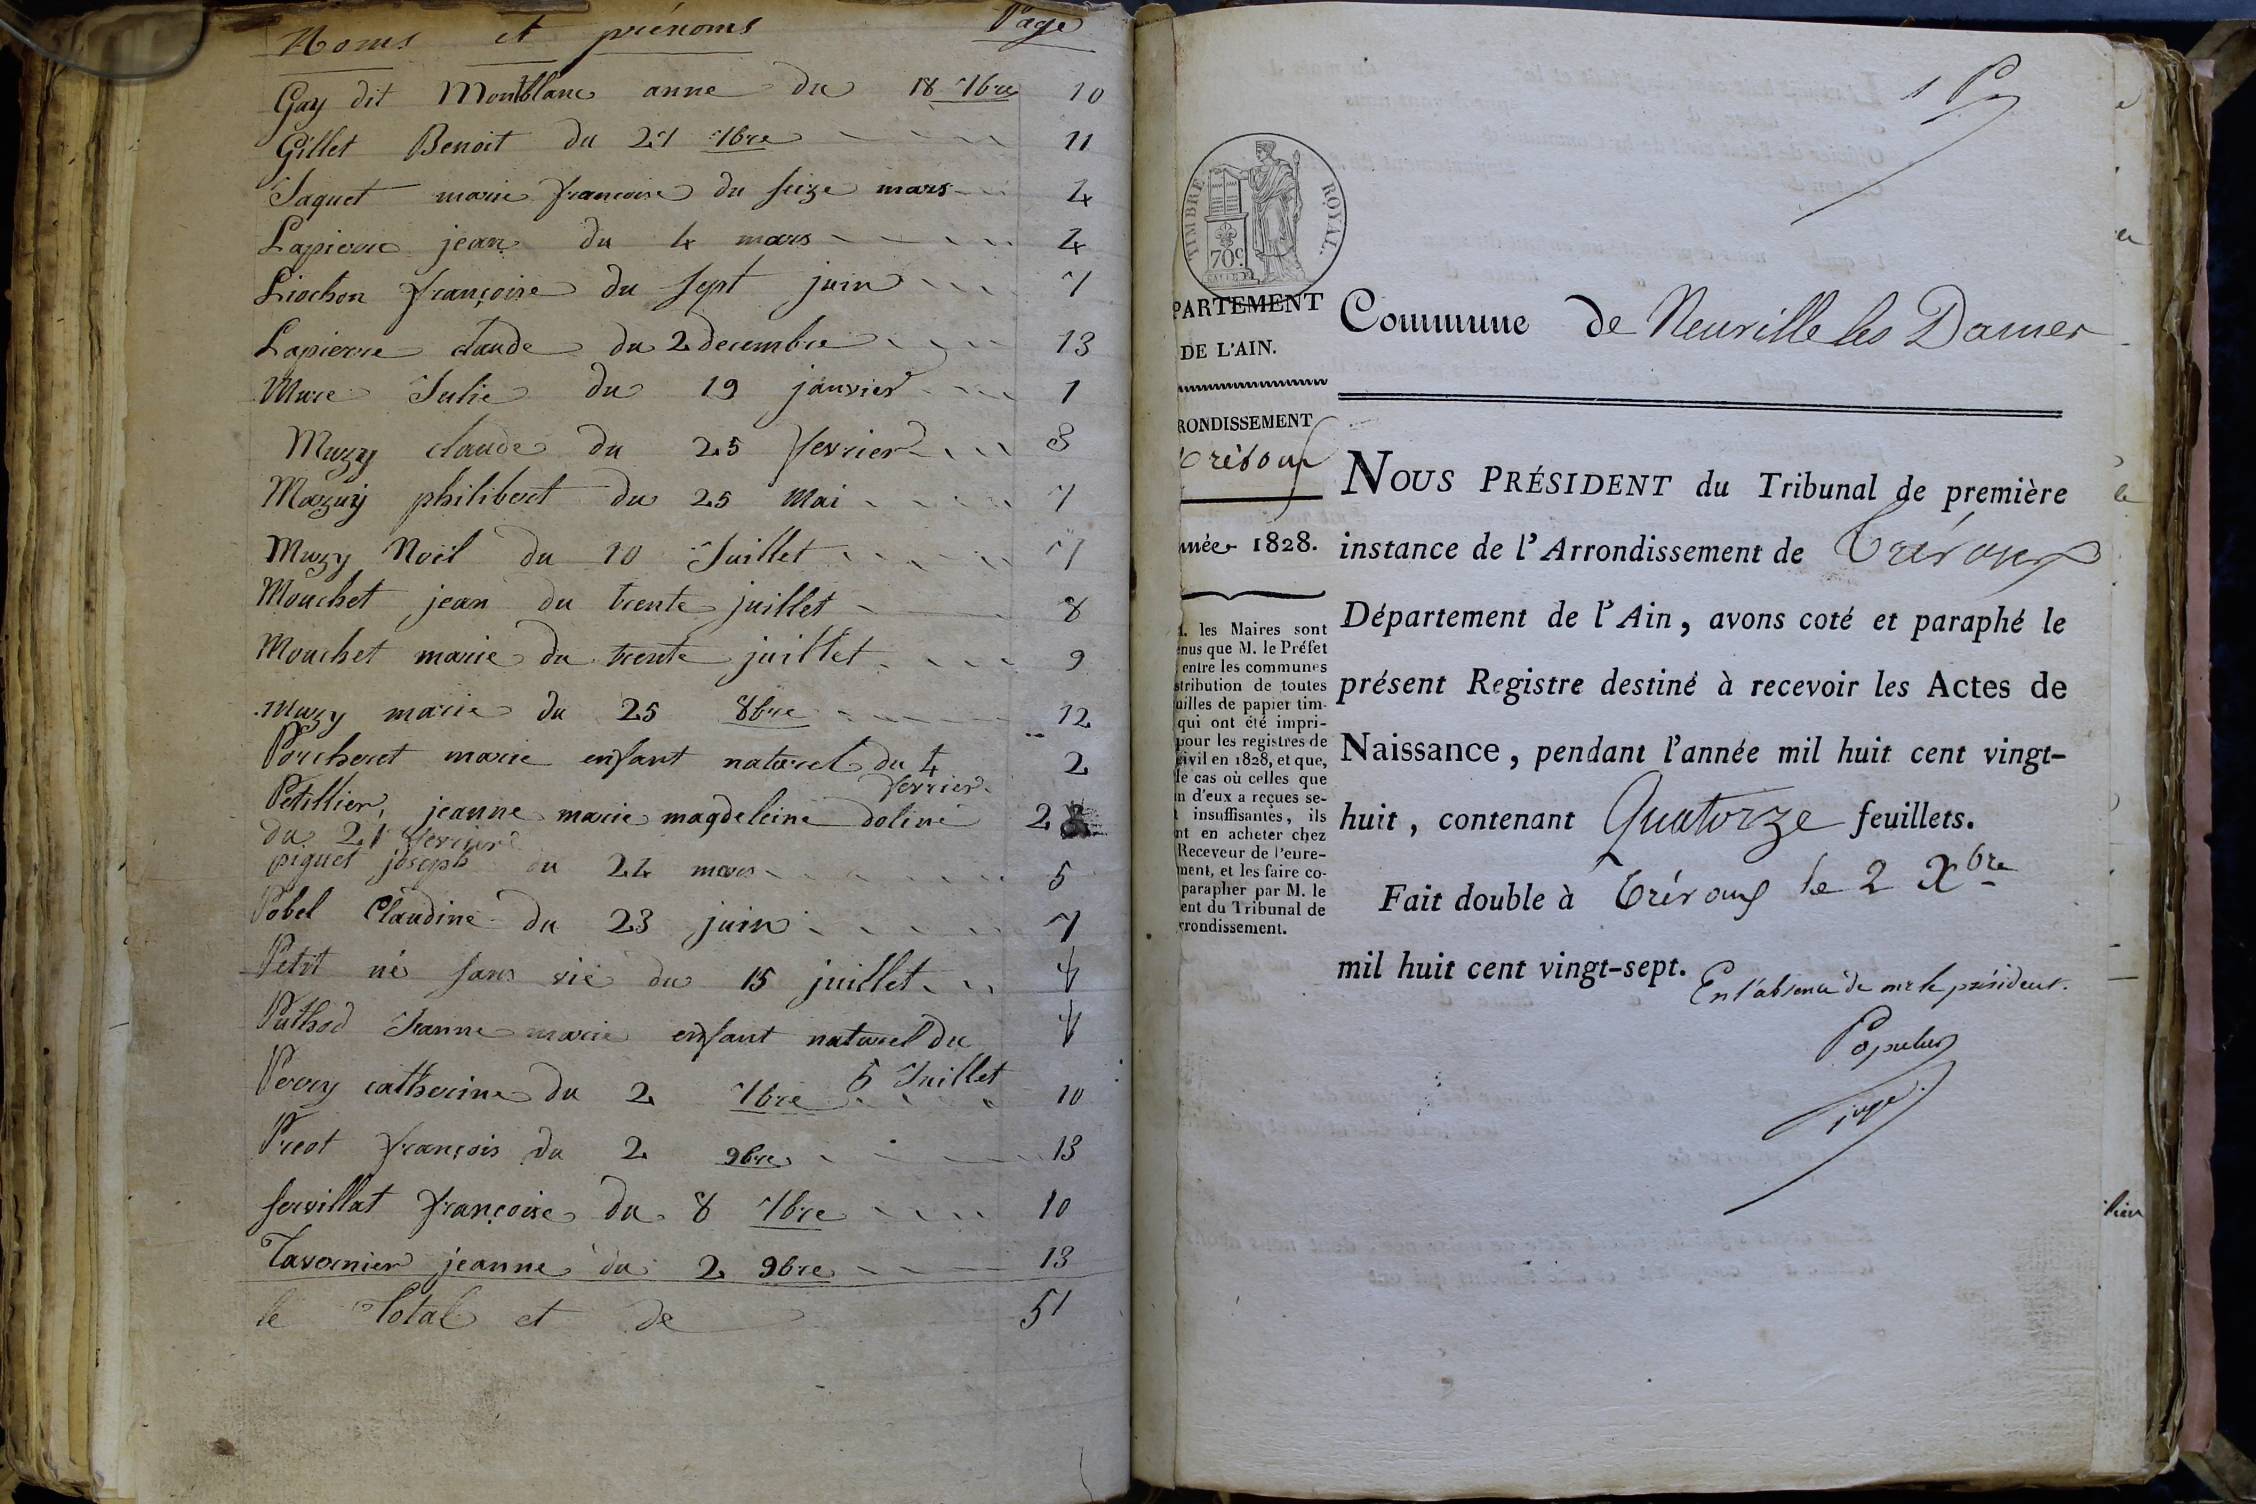 Noms et prénoms Page
Gay dit Montblanc anne du 18 7bre 10
Gillet Benoit du 27 7bre 11
Jaquet marie francoise du seize mars 4
Lapierre jean du 4 mars 4
Liochon françoise du sept juin 7
Lapierre claude du 2 decembre 13
Mure Julie du 19 janvier 1
Muzy claude du 25 fevrier 3
Mazuy philibert du 25 Mai 7
Muzy Noël du 10 Juillet 7
Mouchet jean du trente juillet 8
Mouchet marie du trente juillet 9
Muzy marie du 25 8bre 12
Porcheret marie enfant naturel du 4 2
fevrier
Petillier, jeanne marie magdeleine doline 2
du 21 fevrier
piquet joseph du 24 mars 5
Pobel Claudine du 23 juin 7
Petit né sans vie du 15 juillet
Puthod Jeanne marie enfant naturel du
5 Juillet
Perry catherine du 2 7bre 10
Preot françois du 2 9bre 13
servillat françoise du 8 7bre 10
Tavernier jeanne du 2 9bre 13
le Total et de 51
1 P
TIMBRE ROYAL.
70c.
PARTEMENT
DE L'AIN.
RONDISSEMENT
Trévoux
nnée 1828.
les Maires sont
enus que M. le Préfet
entre les communes
stribution de toutes
uilles de papier tim-
qui ont été impri-
pour les registres de
civil en 1828, et que,
le cas où celles que
n d'eux a reçues se-
t insuffisantes, ils
nt en acheter chez
Receveur de l'eure-
ment, et les faire co-
parapher par M. le
ent du Tribunal de
rrondissement.
Commune de Neuville les Dames
NOUS PRÉSIDENT du Tribunal de première
instance de l'Arrondissement de Trévoux
Département de l'Ain, avons coté et paraphé le
présent Registre destiné à recevoir les Actes de
Naissance, pendant l'année mil huit cent vingt-
huit, contenant Quatorze feuillets.
Fait double à Trévoux le 2 Xbre
mil huit cent vingt-sept.
En l'absence de mr le président.
Populus
juge